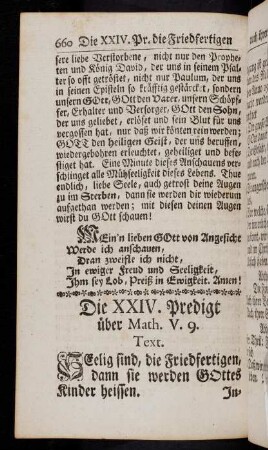 660 Die XXIV. Pr. die Friedfertigen
sere liebe Verstorbene, nicht nur den Prophe-
ten und König David, der uns in seinem Psal-
ter so offt getröstet, nicht nur Paulum, der uns
in seinen Episteln so kräfftig gestärcket, sondern
unsern GOtt, GOtt den Vater, unsern Schöpf-
fer, Erhalter und Versorger, GOtt den Sohn,
der uns geliebet, erlöset und sein Blut für uns
vergossen hat, nur daß wir könten rein werden;
GOTT den heiligen Geist, der uns beruffen,
wiedergebohren erleuchtet, geheiliget und befe-
stiget hat. Eine Minute dieses Anschauens ver-
schlinget alle Mühseeligkeit dieses Lebens. Thue
endlich, liebe Seele, auch getrost deine Augen
zu im Sterben, dann sie werden dir wiederum
aufgethan werden; mit diesen deinen Augen
wirst du GOtt schauen!
MEin'n lieben GOtt von Angesicht
Werde ich anschauen,
Dran zweifle ich nicht,
In ewiger Freud und Seeligkeit,
Ihm sey Lob, Preiß in Ewigkeit. Amen!
Die XXIV. Predigt
über Math. V. 9.
Text.
SEelig sind, die Friedfertigen,
dann sie werden GOttes
Kinder heissen.
In-